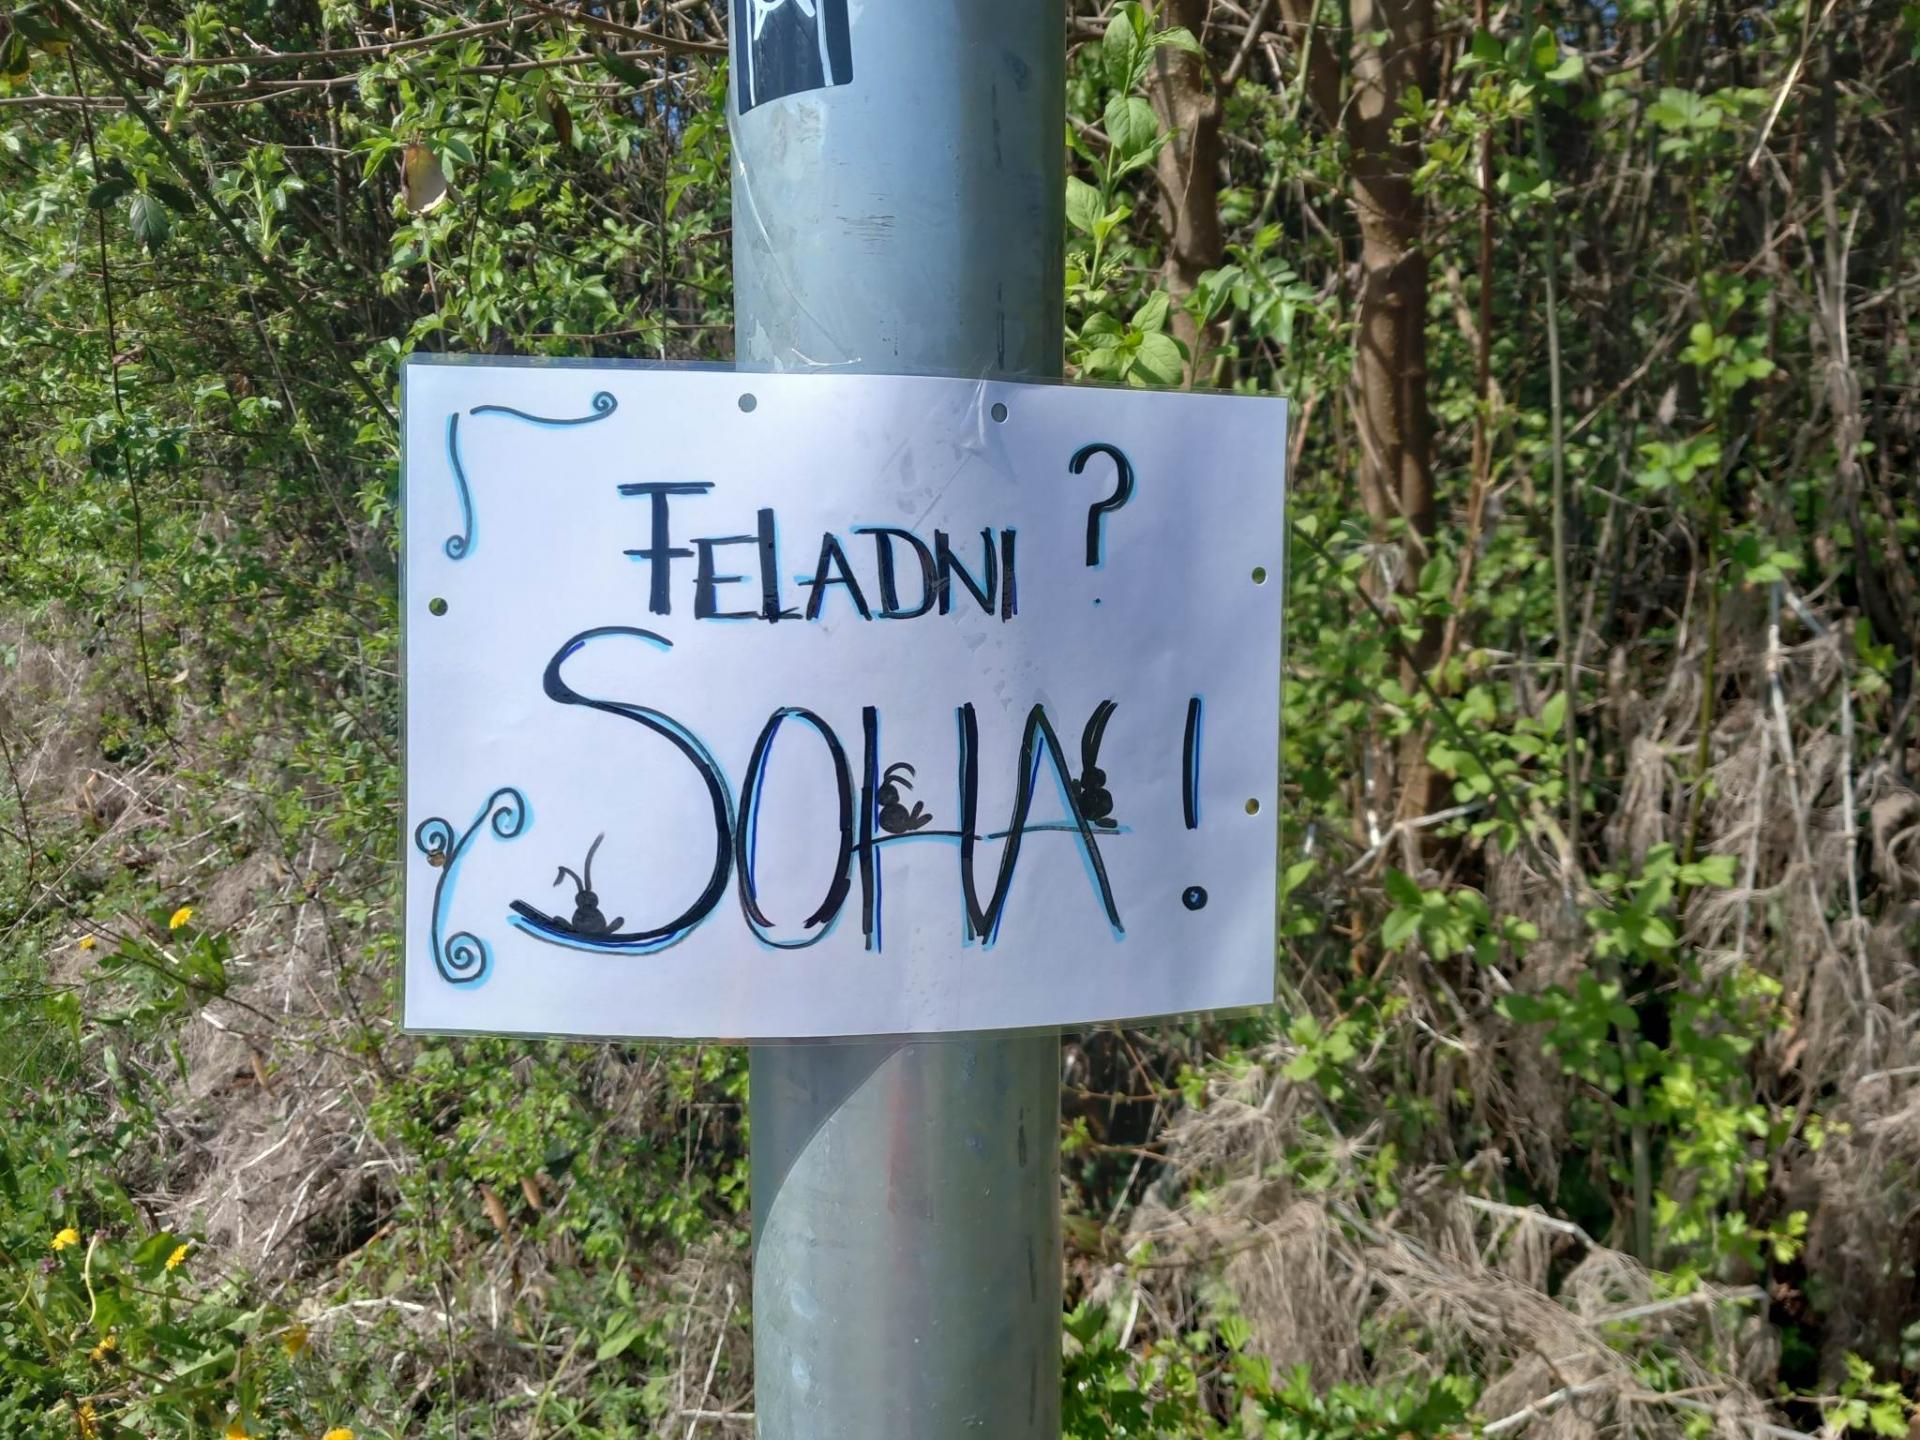 FELADNI ?
SOHA !